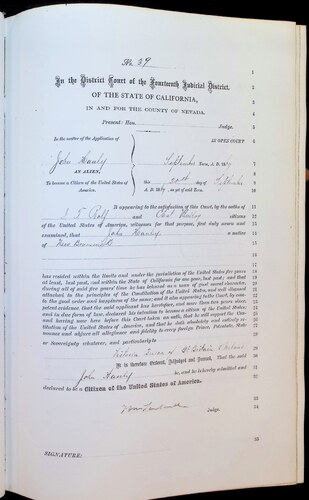 No. 39
In the District Court of the Fourteenth Judicial District.
OF THE STATE OF CALIFORNIA,
IN AND FOR THE COUNTY OF NEVADA.
Present: Hon. Judge.
In the matter of the Application of
IN OPEN COURT
John Hanly
AN ALIEN,
September Term, A. D. 18
To become a Citizen of the United States of
America.
this day of September
A. D. 18 as yet of said Term.
It appearing to the satisfaction of this Court, by the oaths of
and citizens
of the United States of America, witnesses for that purpose, first duly sworn and
examined, that John Hanly a native
of New Brunswick
has resided within the limits and under the jurisdiction of the United States five years
at least, last past, and within the State of California for one year, last past; and that
during all of said five years' time he has behaved as a man of good moral character,
attached to the principles of the Constitution of the United States, and well disposed
to the good order and happiness of the same; and it also appearing to the Court, by com-
petent evidence, that the said applicant has heretofore, and more than two years since,
and in due form of law, declared his intention to become a citizen of the United States;
and having now here before this Court taken an oath, that he will support the Con-
stitution of the United States of America, and that he doth absolutely and entirely re-
nounce and abjure all allegiance and fidelity to every foreign Prince, Potentate, State
or Sovereignty whatever, and particularly to
Victoria Queen of Gt Britain & Ireland
It is therefore Ordered, Adjudged and Decreed, That the said
John Hanly is, and he is hereby admitted and
declared to be a Citizen of the United States of America.
Judge.
SIGNATURE: